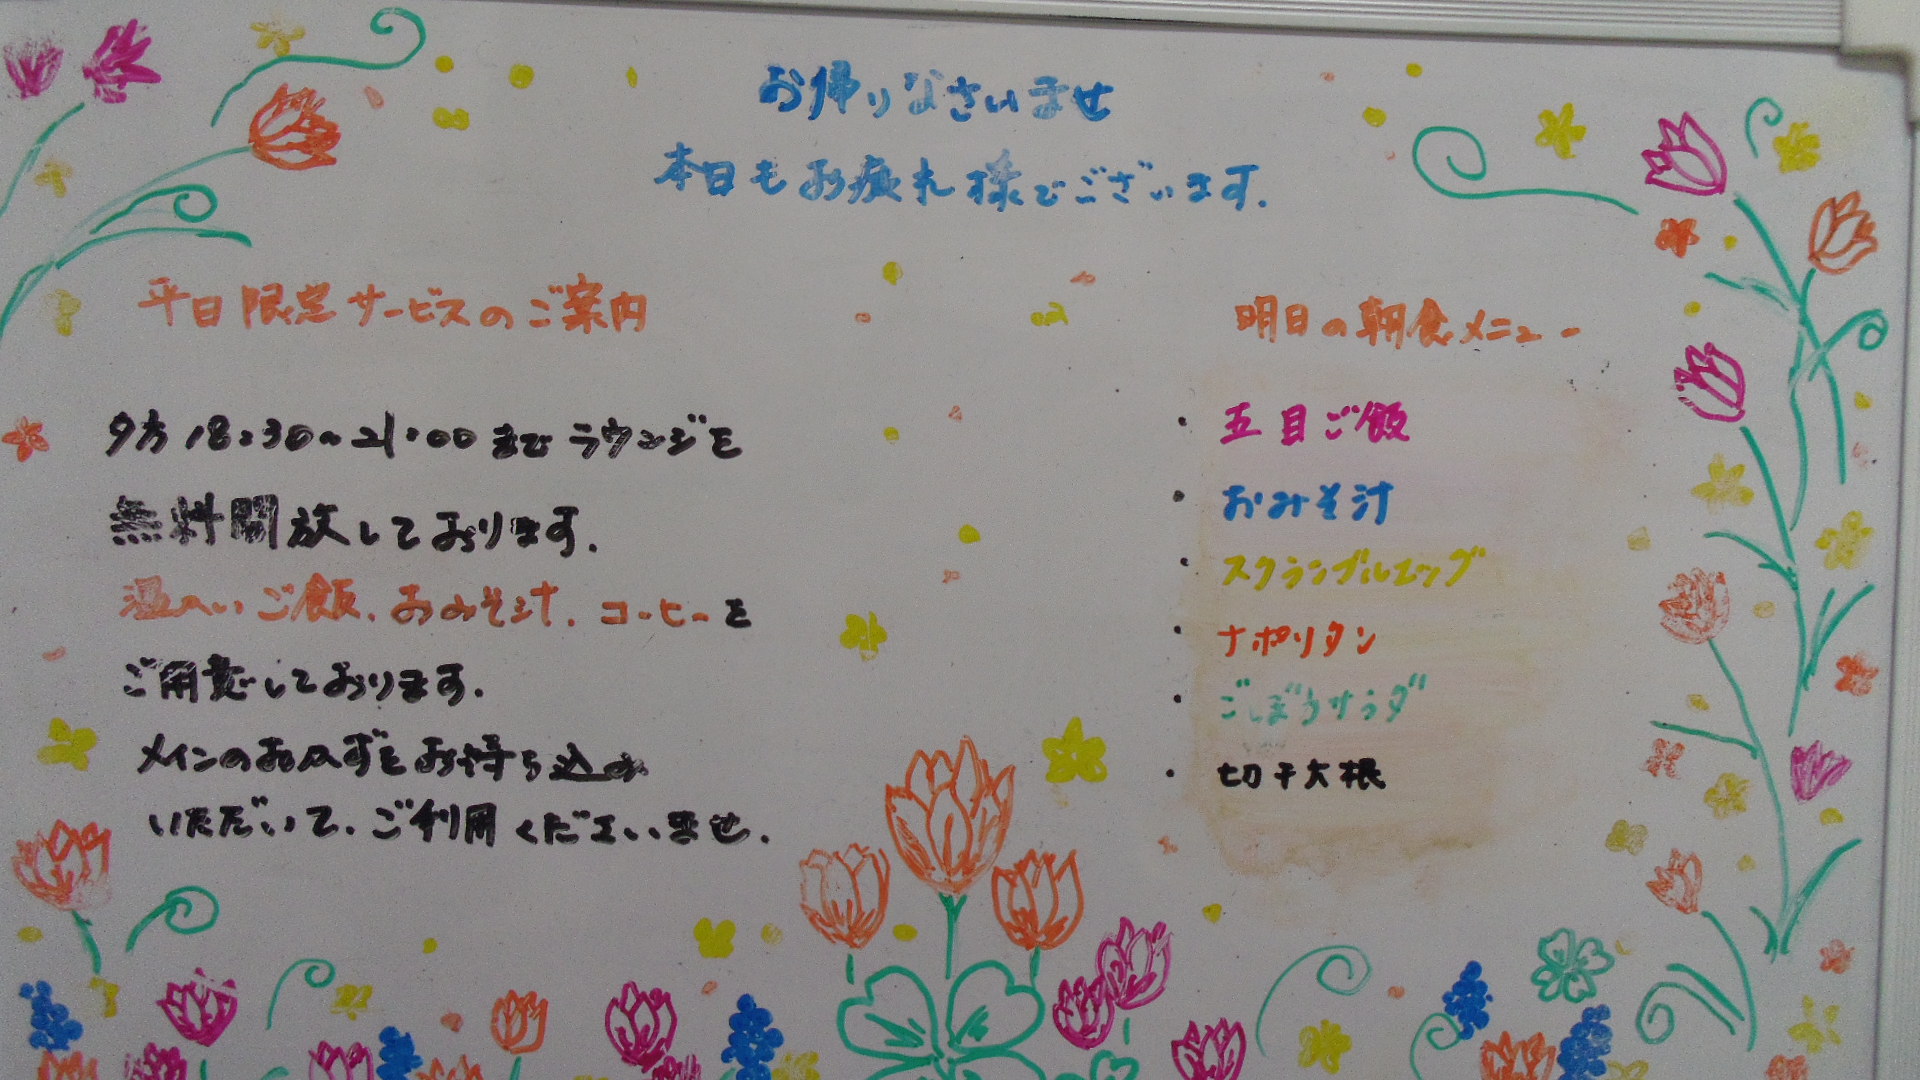 お帰りなさいませ
本日もお疲れ様でございます.
平日限定サービスのご案内
夕方18:30~21:00までラウンジを
無料開放しております.
温かいご飯.おみそ汁.コーヒーを
ご用意しております.
メインのおかずをお持ち込み
いただいて.ご利用くださいませ.
明日の朝食メニュー
・五目ご飯
・おみそ汁
・スクランブルエッグ
・ナポリタン
・ごぼうサラダ
・切干大根